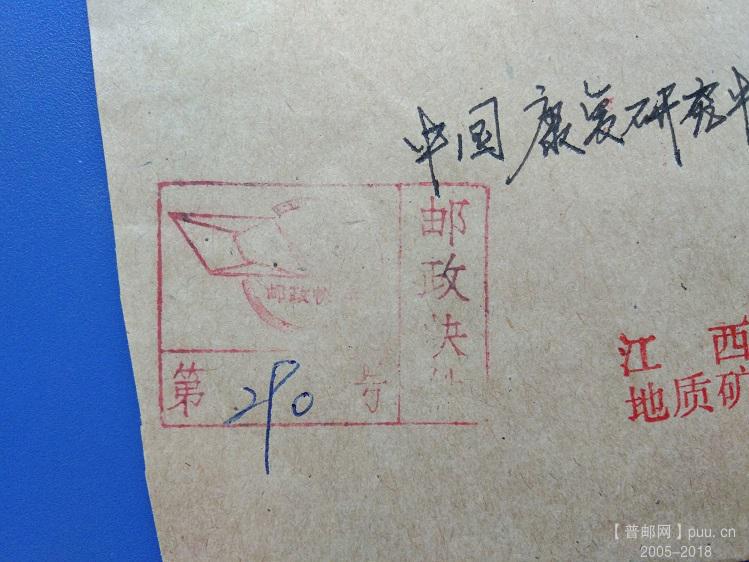 中国康复研究中
邮政快
邮政快
第 290 号
江西
地质矿
【普邮网】puu.cn
2005-2018